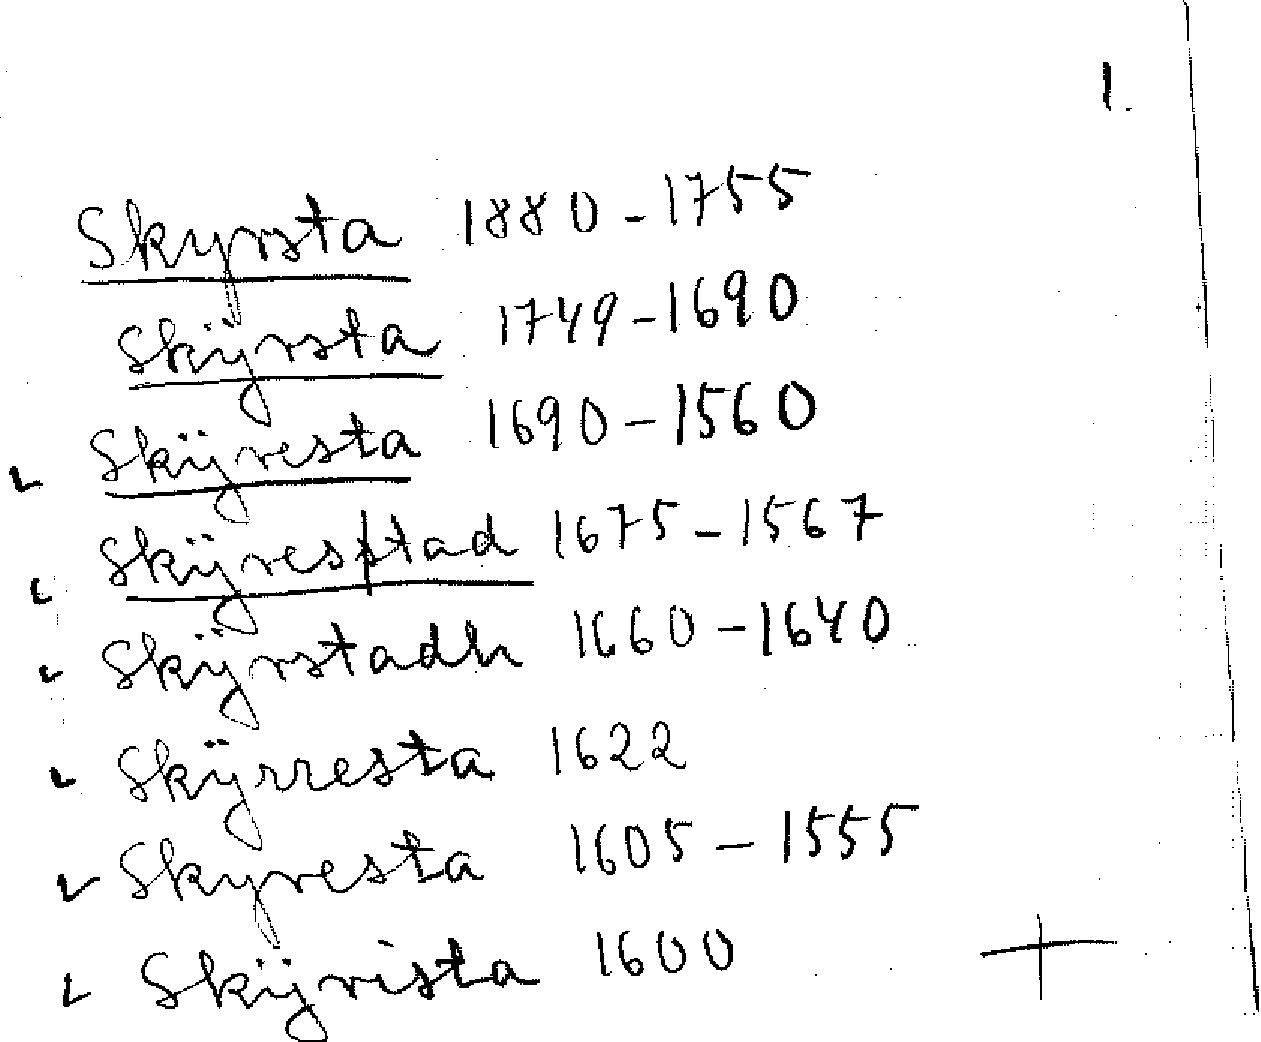 1.
Skyrsta 1880-1755
Skÿrsta 1749-1690
Skÿresta 1690-1560
Skÿresstad 1675-1567
Skÿrstadh 1660-1640
Skÿrresta 1622
Skyresta 1605-1555
Skÿrista 1600